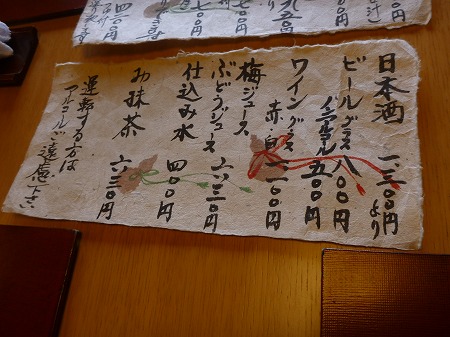 日本酒 一、三〇〇円より
ビール グラス 八〇〇円
ノンアルコール 五〇〇円
ワイングラス 赤・白 一、一〇〇円
梅ジュース
ぶどうジュース 六三〇円
仕込み水 四〇〇円
お抹茶 六三〇円
運転する方は
アルコールご遠慮下さい